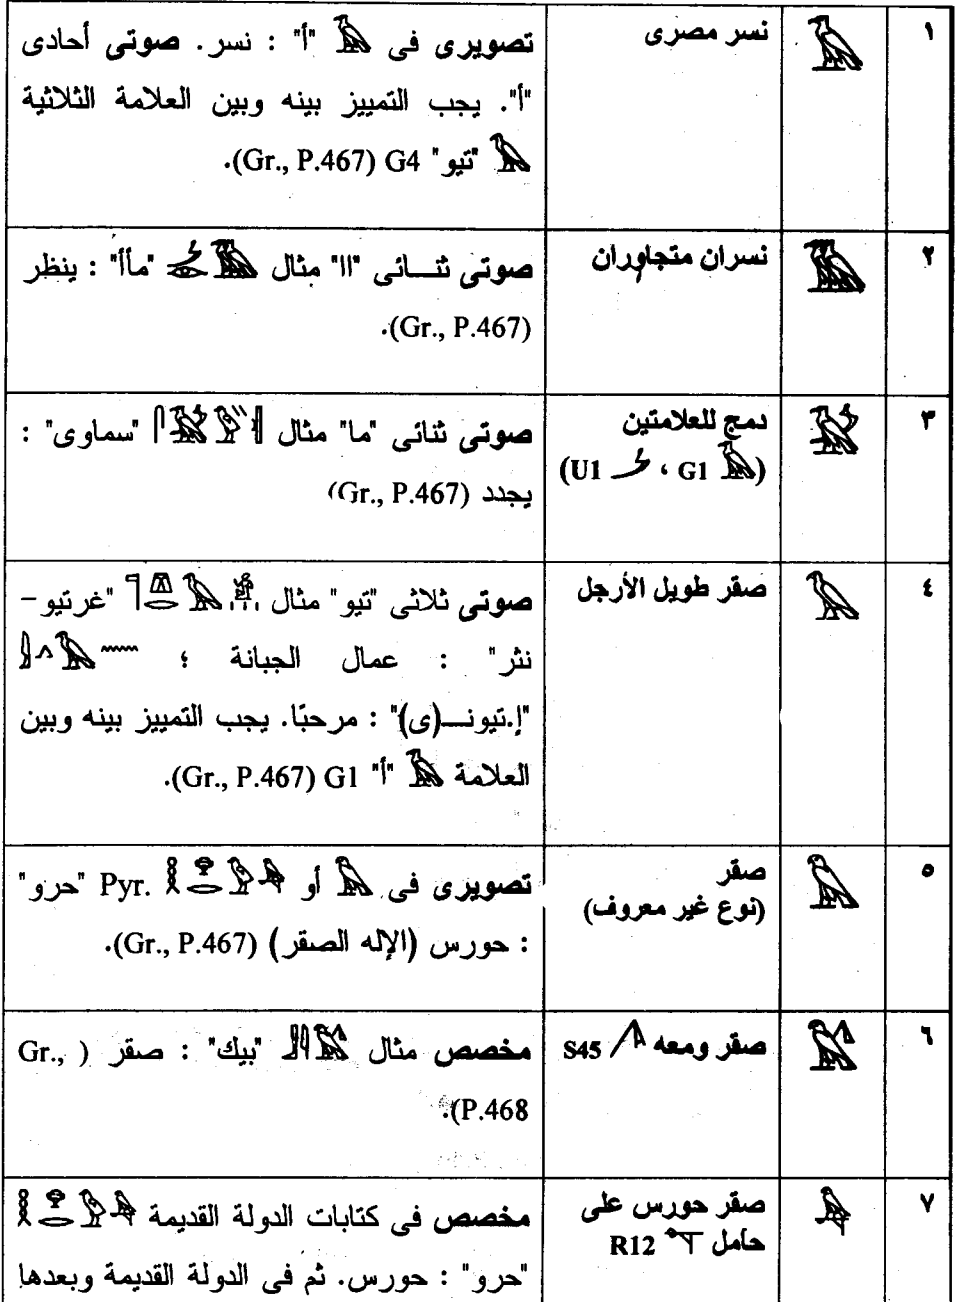 ١ 𓄿 نسر مصرى تصويرى فى 𓄿 "أ" : نسر. صوتى أحادى
"أ". يجب التمييز بينه وبين العلامة الثلاثية
𓅂 "تيو" G4 (Gr., P.467).
٢ 𓅀 نسران متجاوران صوتى ثنـــائى "اا" مثال 𓌳𓁹𓅀 "مأأ" : ينظر
(Gr., P.467).
٣ 𓅁 دمج للعلامتين صوتى ثنائى "ما" مثال "سماوى" :
(𓄿 G1 ، 𓌳 U1) يجدد (Gr., P.467)
٤ 𓅂 صقر طويل الأرجل صوتى ثلاثى "تيو" مثال "غرتيو –
نثر" : عمال الجبانة ؛
"إ.تيونـــ(ى)" : مرحبًا. يجب التمييز بينه وبين
العلامة 𓄿 "أ" G1 (Gr., P.467).
٥ 𓅃 صقر تصويرى فى 𓅃 أو Pyr. "حرو"
(نوع غير معروف) : حورس (الإله الصقر) (Gr., P.467).
٦ 𓅄 صقر ومعه 𓌅 S45 مخصص مثال "بيك" : صقر (Gr.,
P.468).
٧ 𓅆 صقر حورس على مخصص فى كتابات الدولة القديمة
حامل R12 "حرو" : حورس. ثم فى الدولة القديمة وبعدها